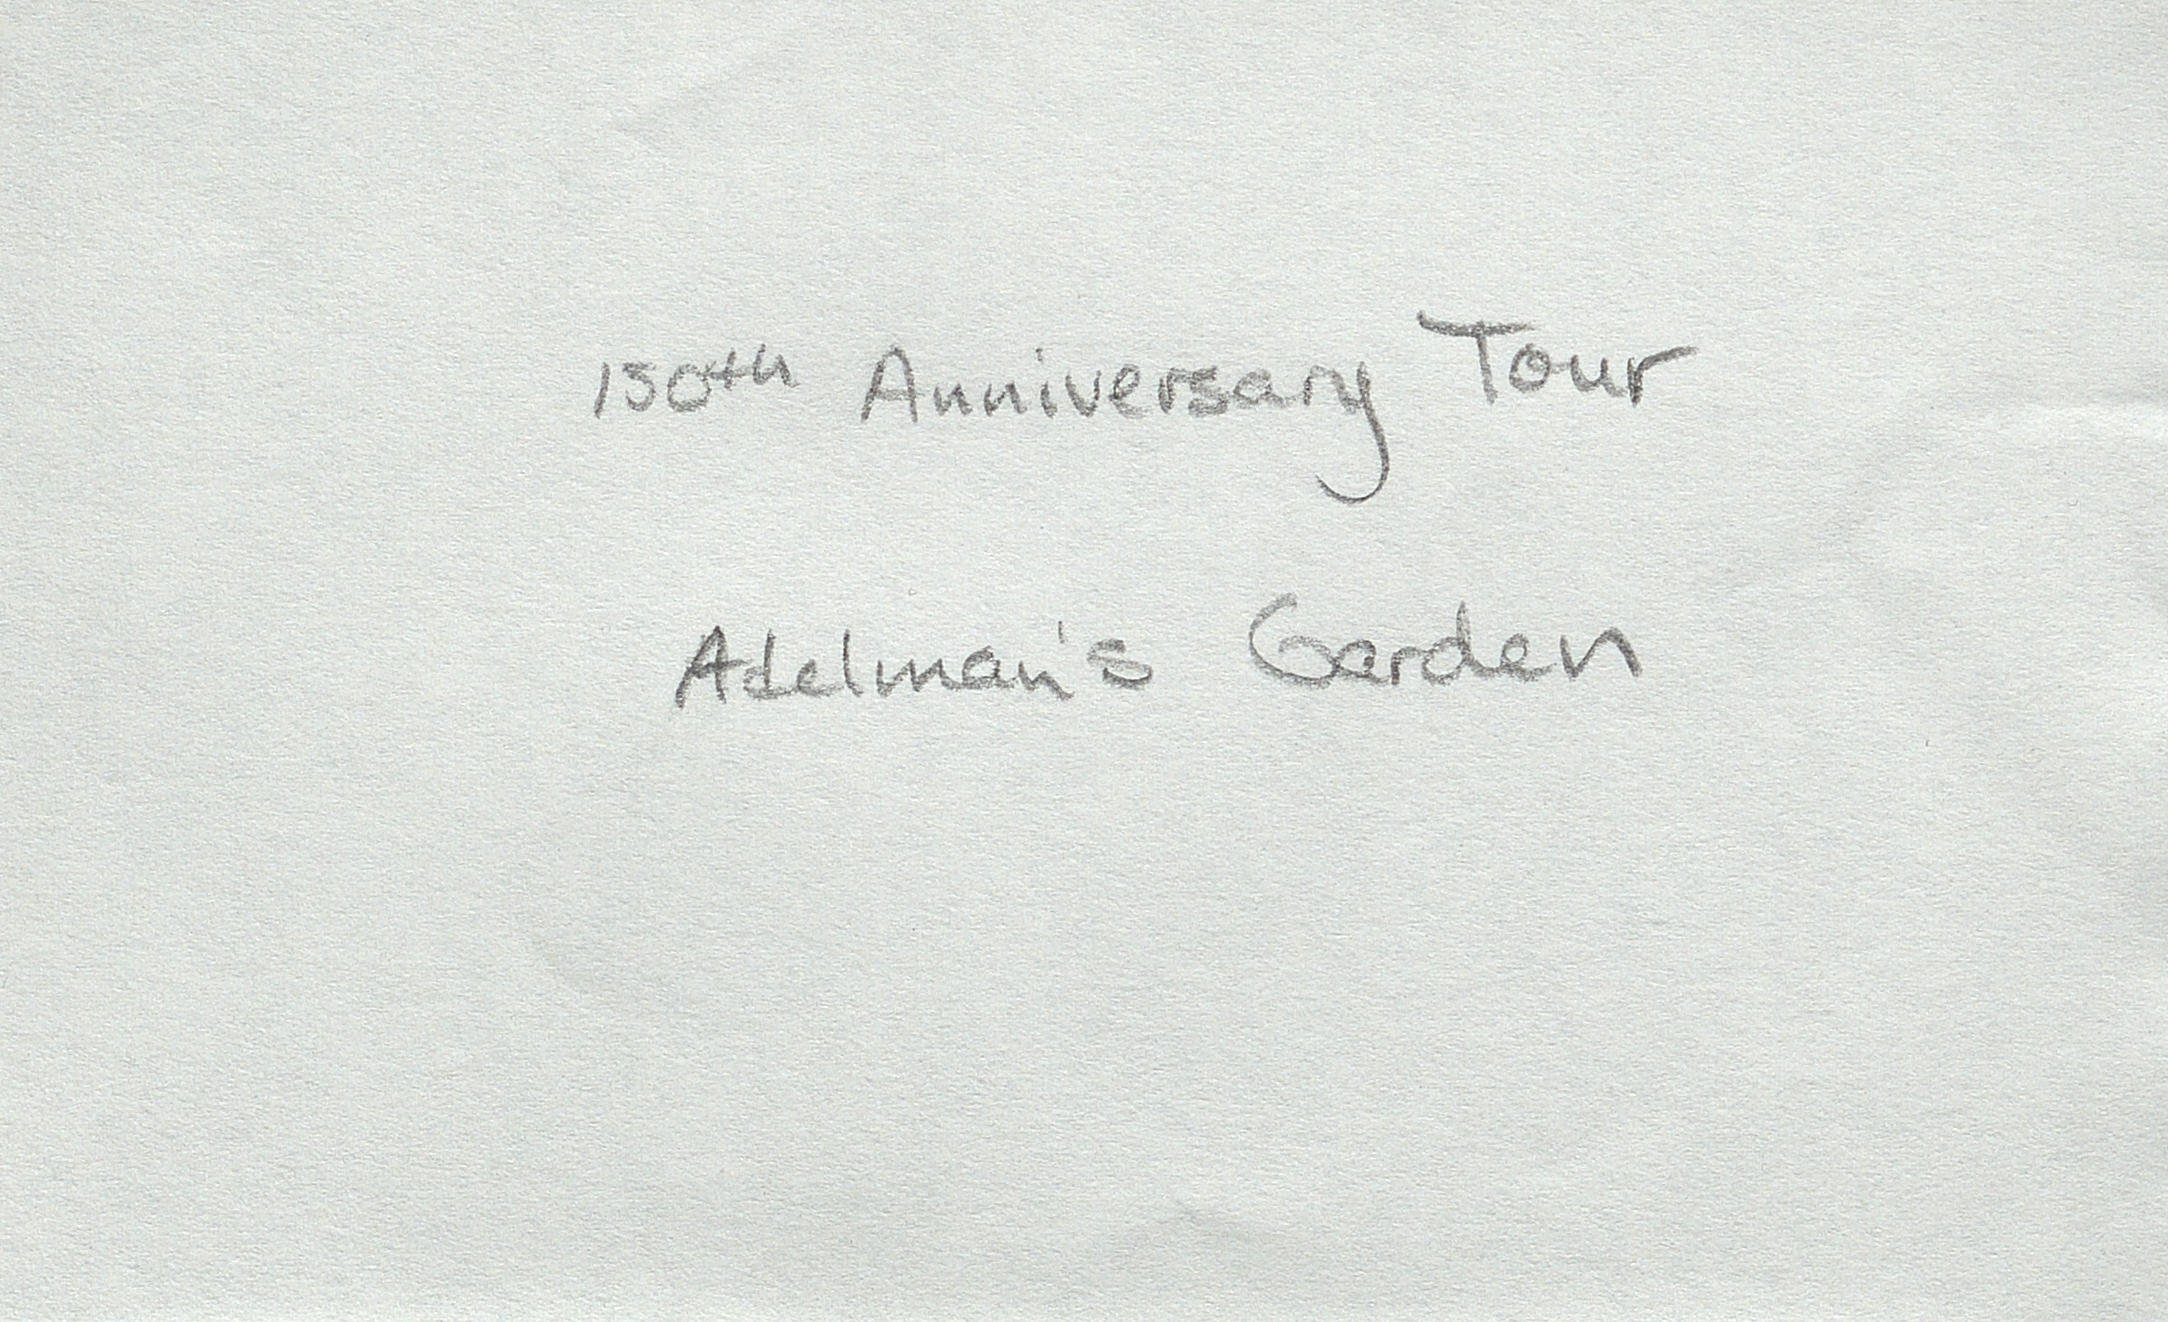 150th Anniversary Tour
Adelman's Garden